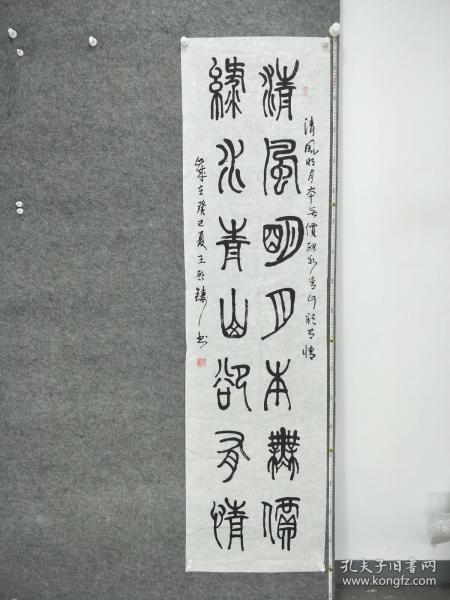 清風明月本無價綠水青山卻有情
清風明月本無價
綠水青山卻有情
歲在癸巳夏王書
孔夫子旧书网
www.kongfz.com